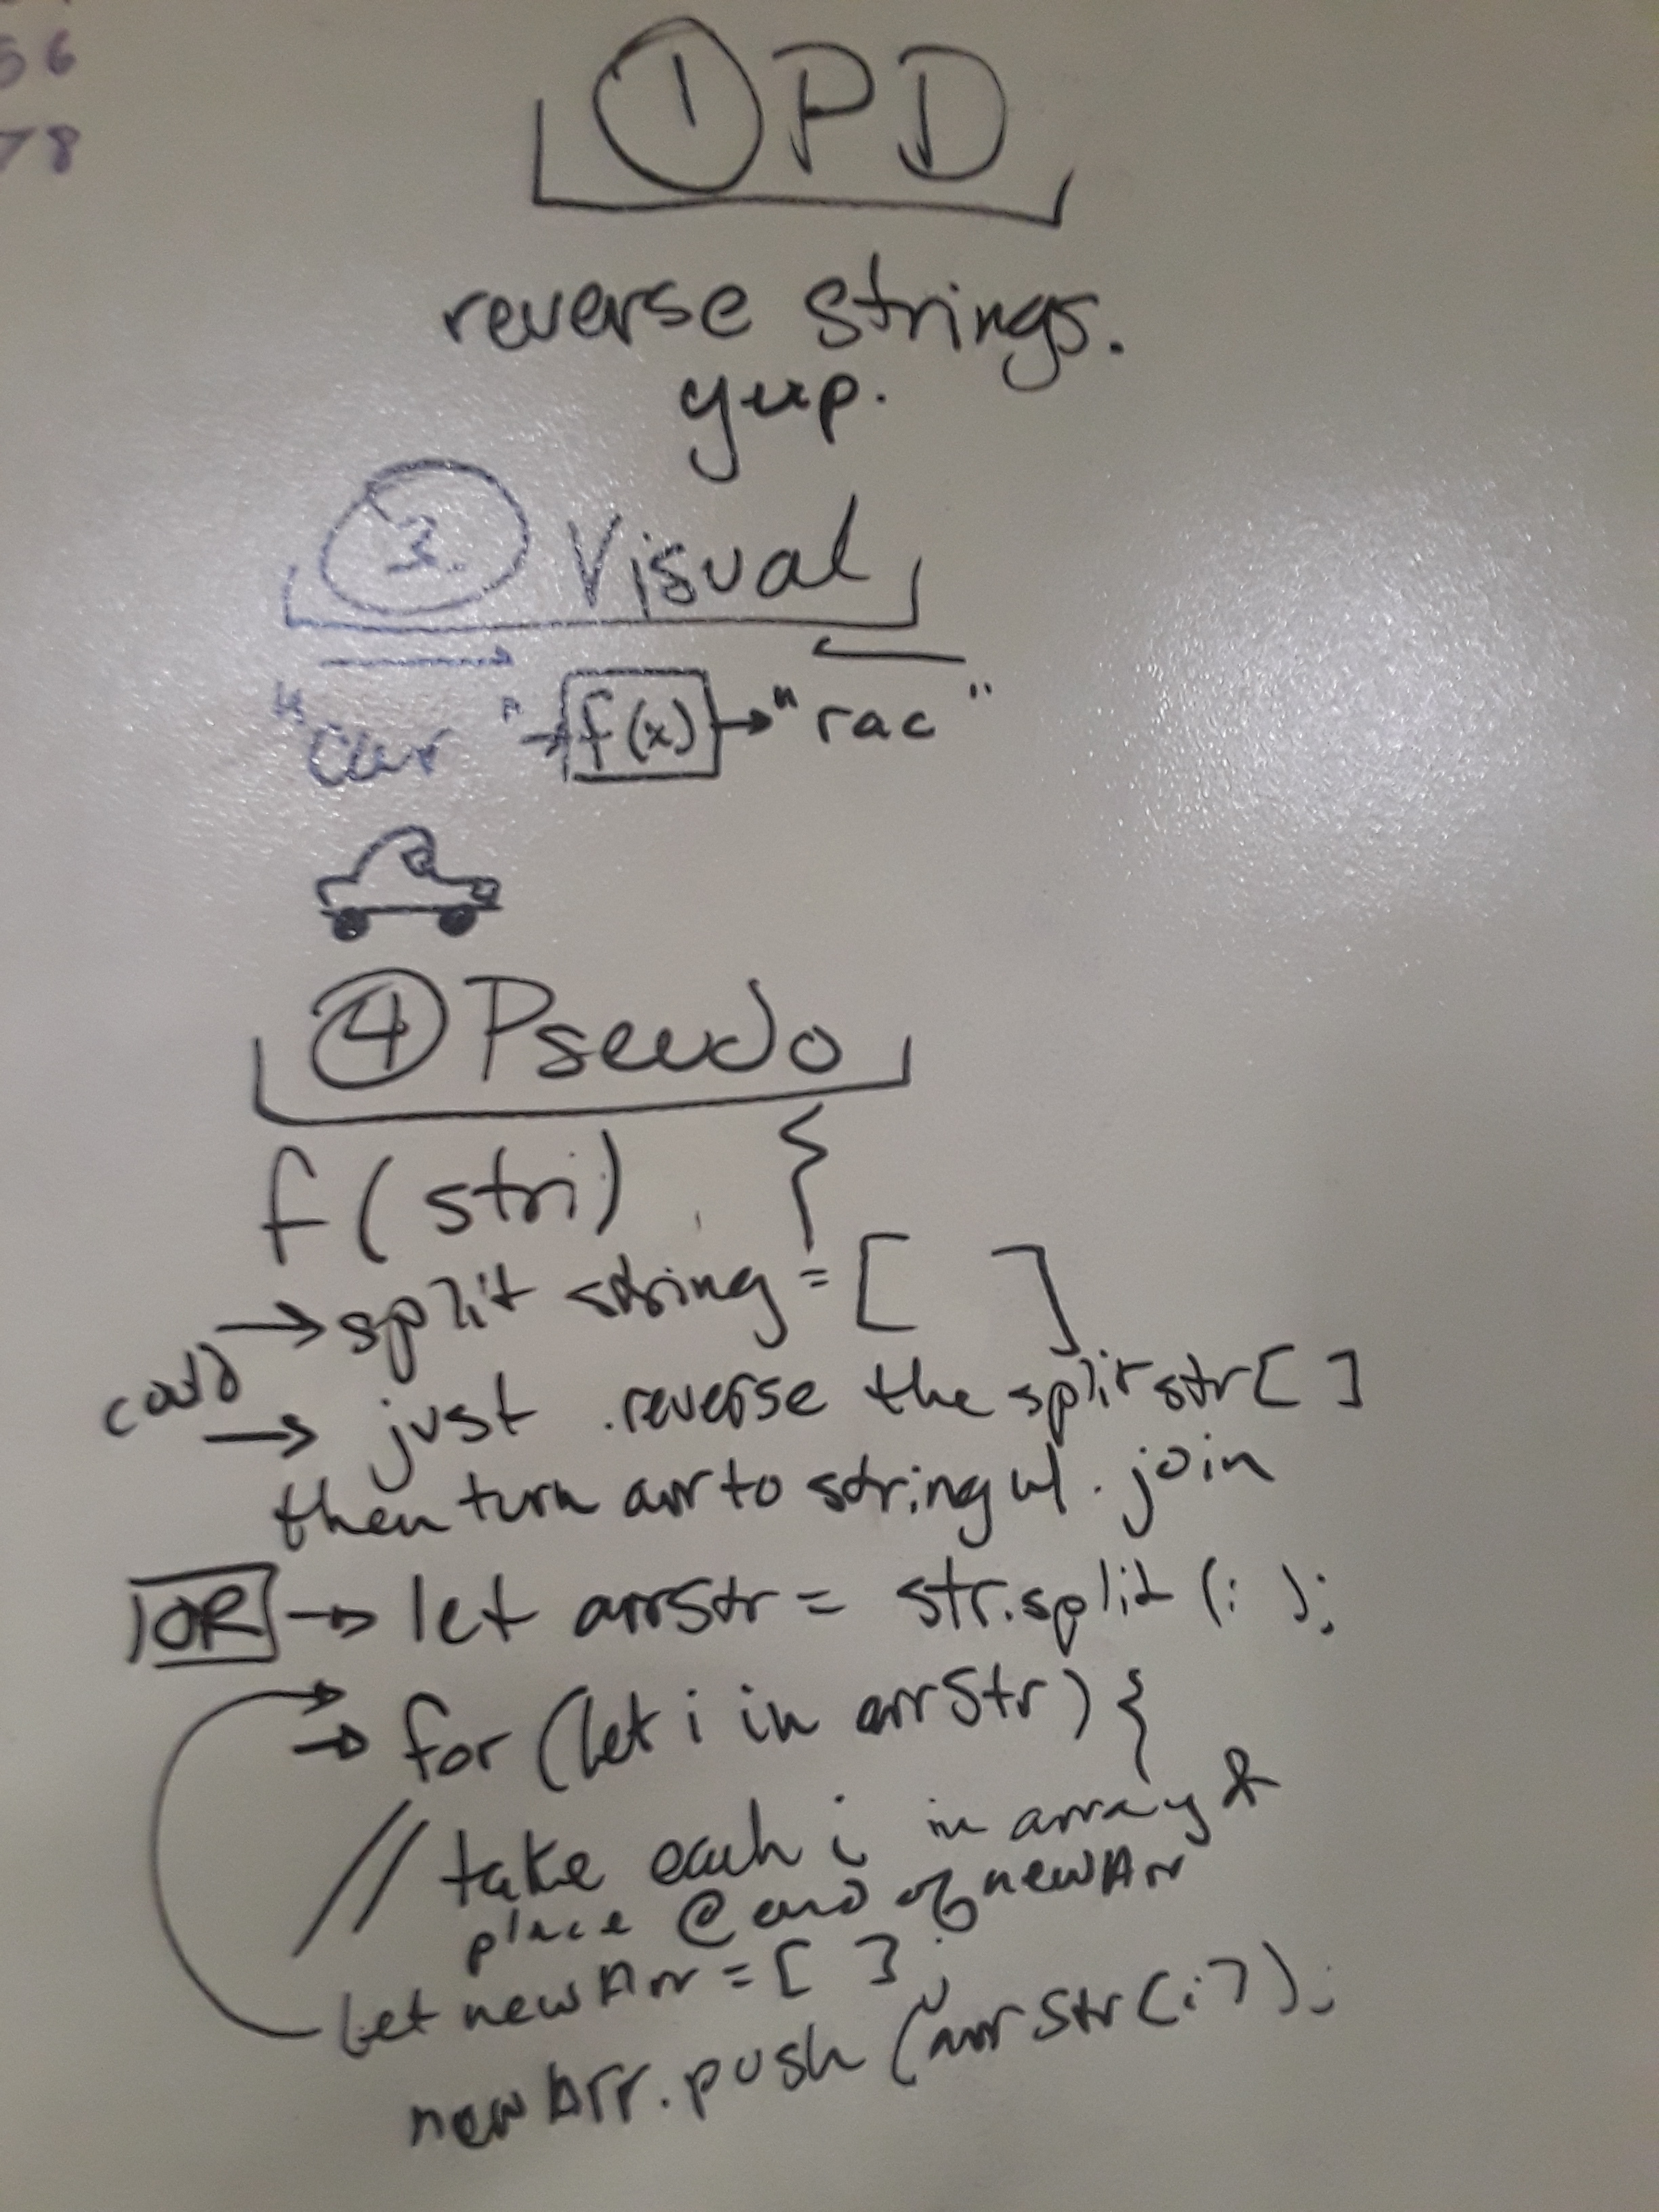 56
78
① PD
reverse strings.
yup.
③. Visual
"car" → f(x) → "rac"
④ Pseudo
f(stri) {
→ split string = [ ]
could
→ just .reverse the splitstr[ ]
then turn arr to string w/ .join
OR → let arrStr = str.split(i );
→ for (let i in arrStr) {
// take each i in array &
place @ end of newArr
let newArr = [ ];
newArr.push(arrStr[i]);